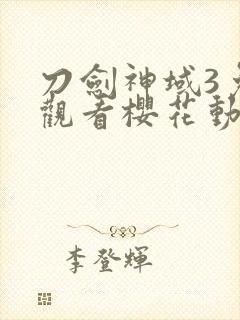 刀劍神域3
觀看櫻花動
李登輝